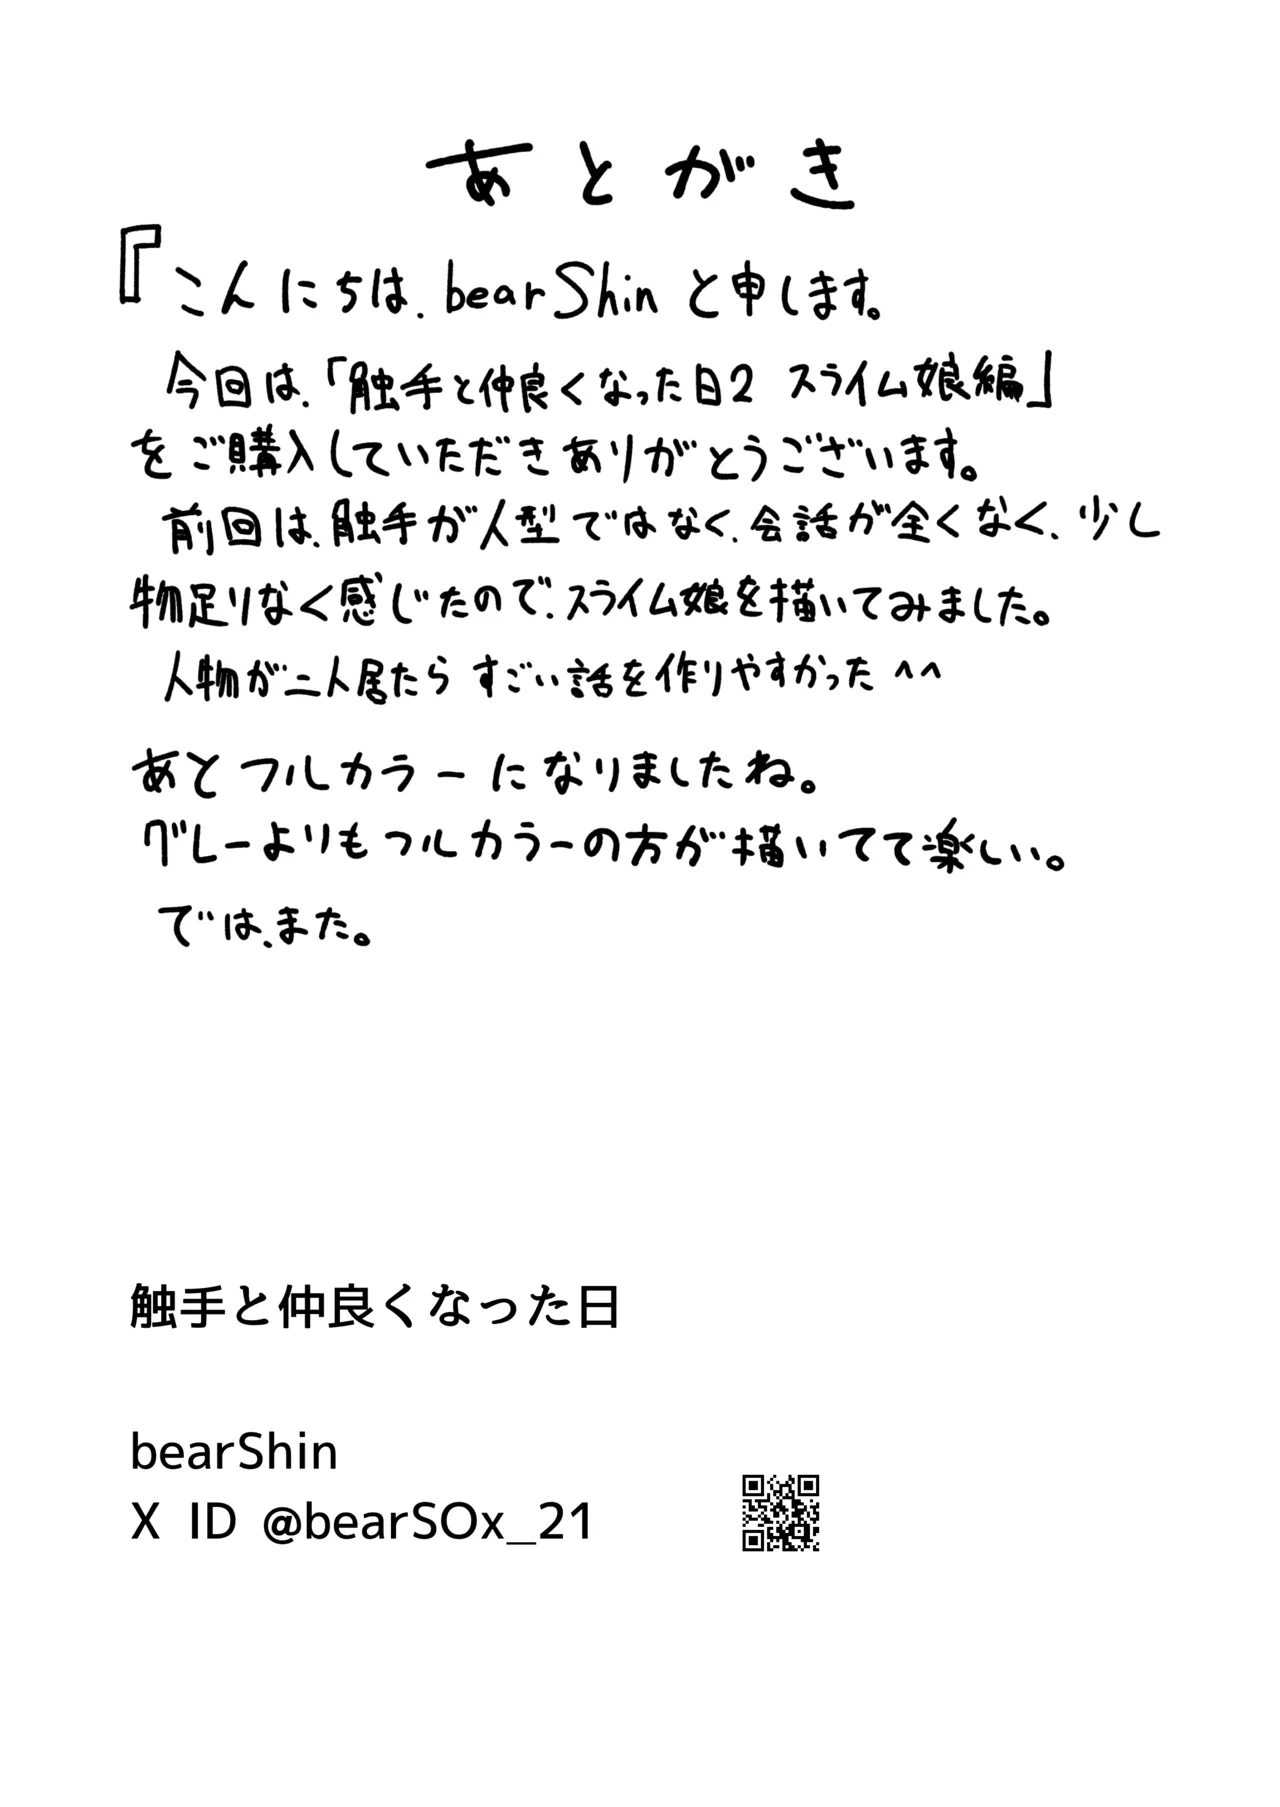 あとがき
『こんにちは、bearShinと申します。
今回は、「触手と仲良くなった日2 スライム娘編」
をご購入していただきありがとうございます。
前回は、触手が人型ではなく、会話が全くなく、少し
物足りなく感じたので、スライム娘を描いてみました。
人物が二人居たら すごい話を作りやすかった ^^
あとフルカラーになりましたね。
グレーよりもフルカラーの方が描いてて楽しい。
では、また。
触手と仲良くなった日
bearShin
X ID @bearSOx_21